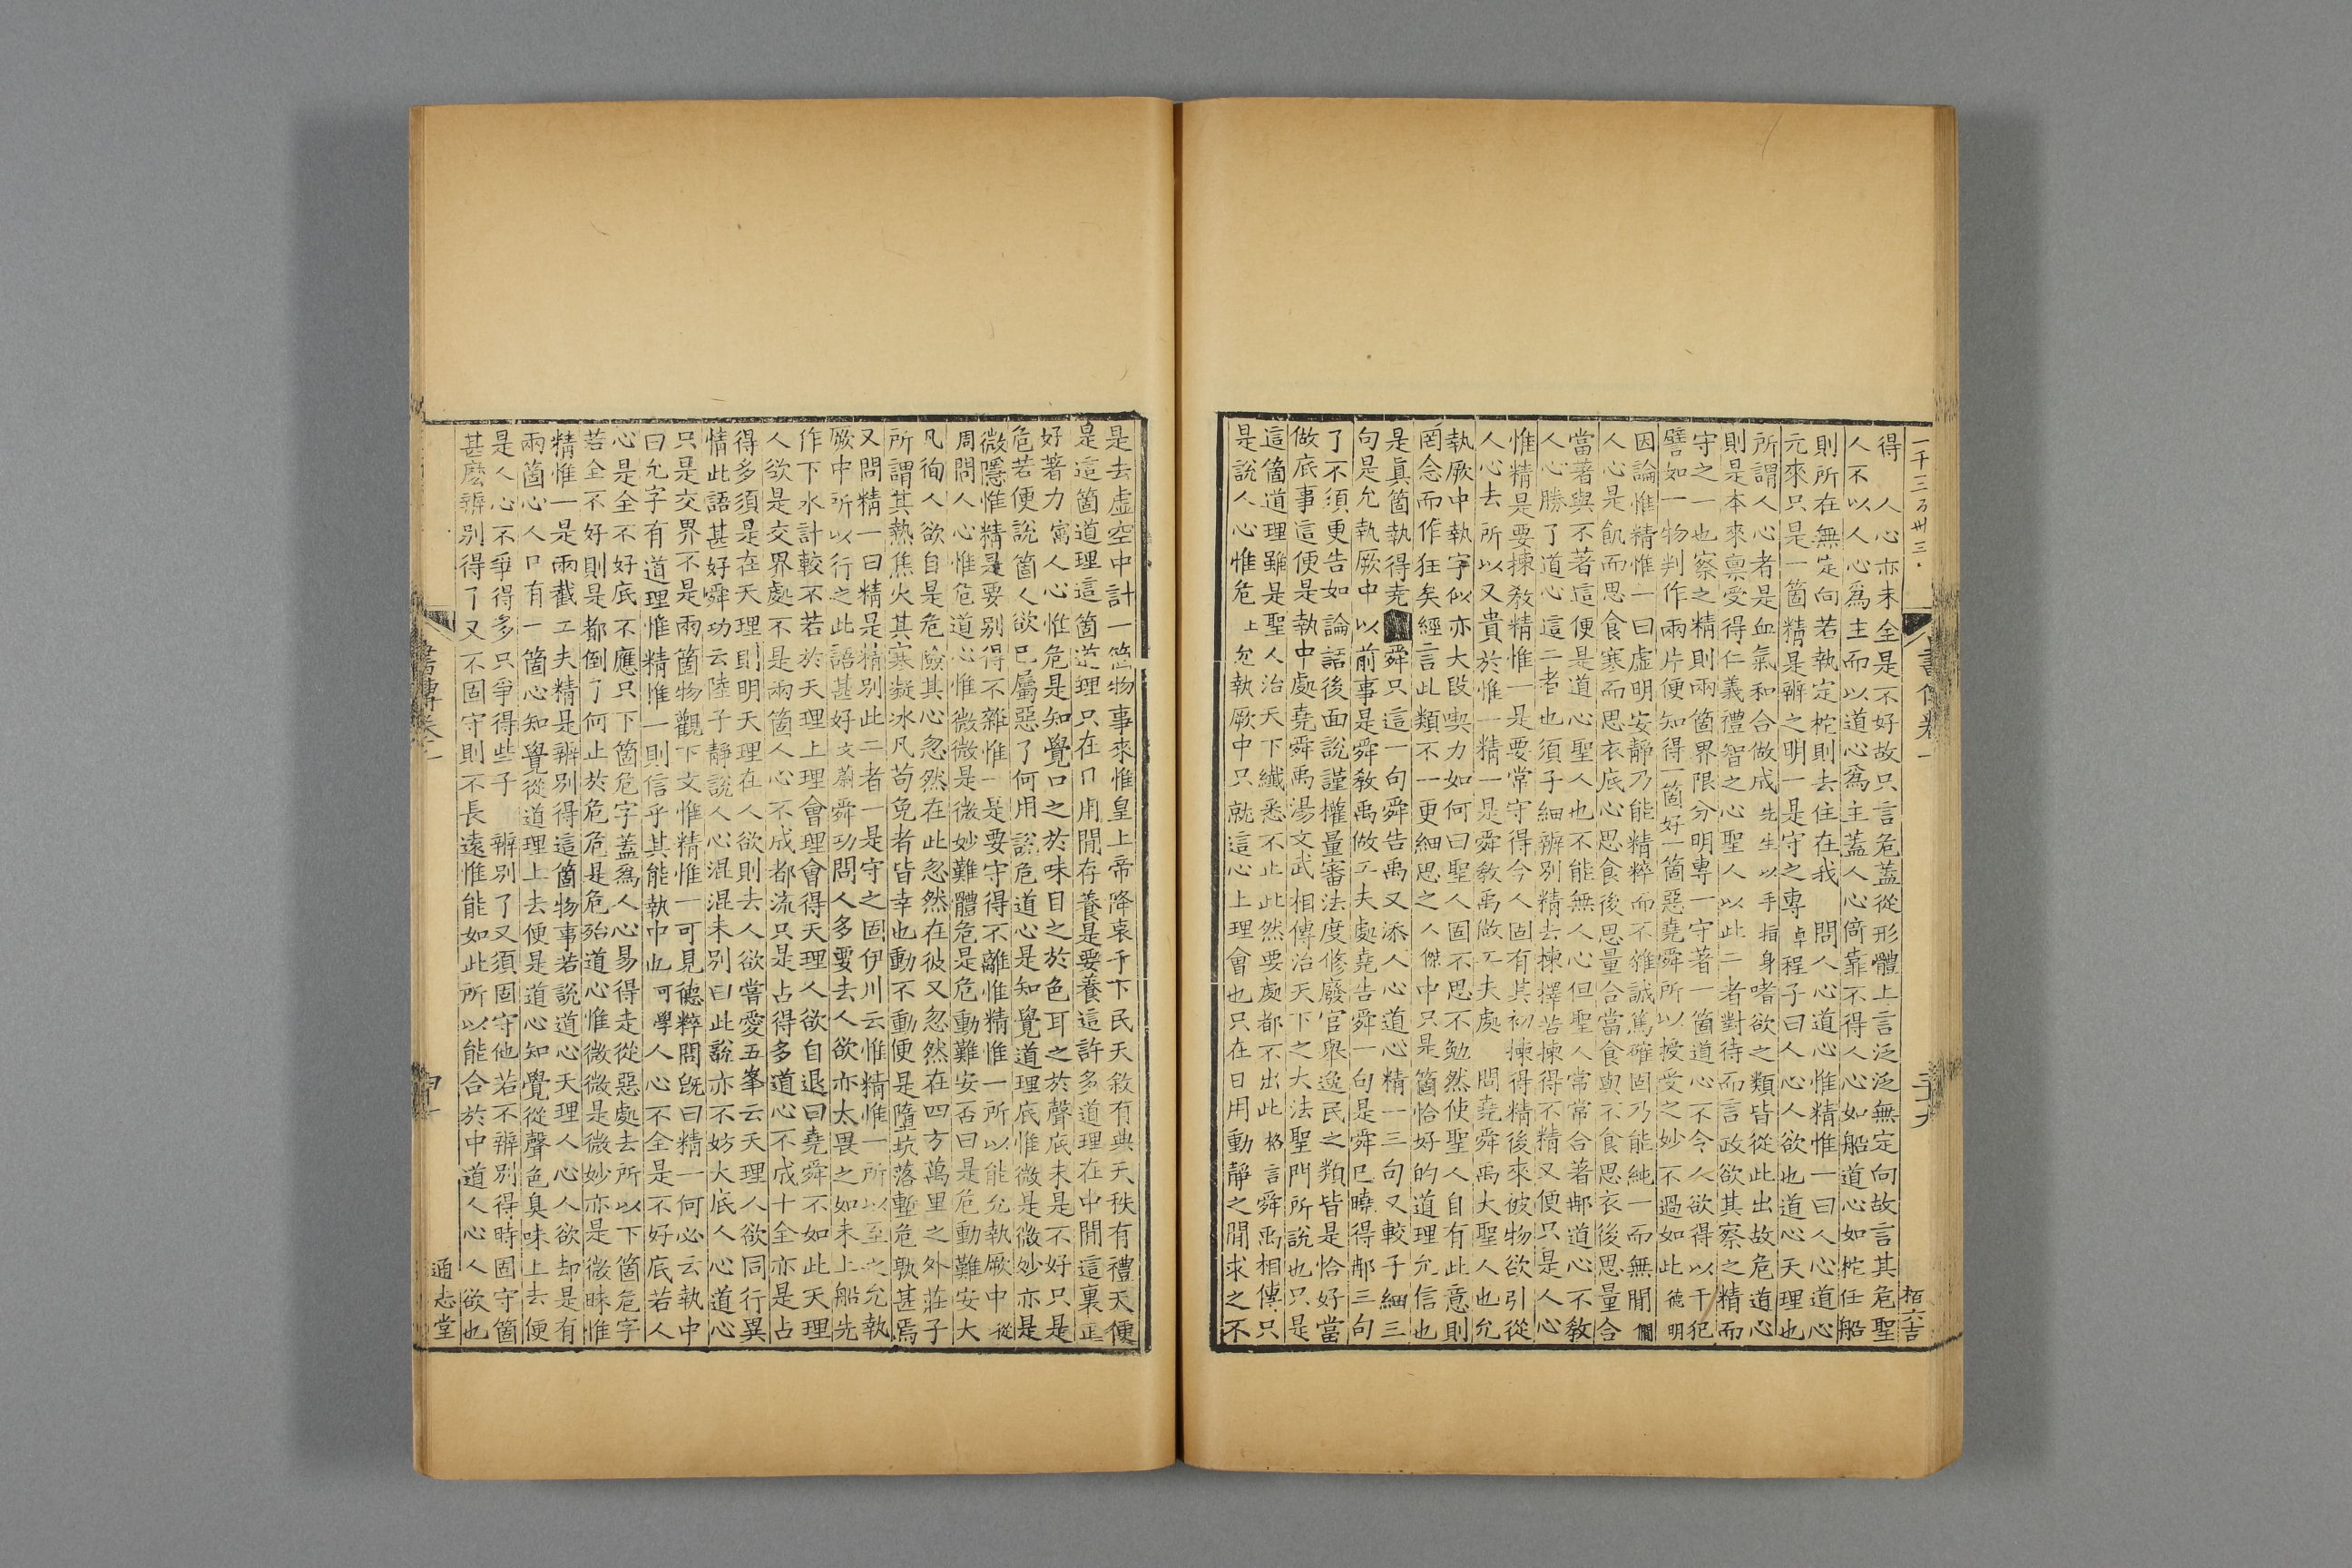 一千三百卅三
書傳卷一
三十九
栢六吉
得　人心亦未全是不好故只言危蓋從形體上言泛泛無定向故言其危聖
人不以人心爲主而以道心爲主蓋人心倚靠不得人心如船道心如柁任船
則所在無定向若執定柁則去住在我　問人心道心惟精惟一曰人心道心
元來只是一箇精是辨之明一是守之專卓程子曰人心人欲也道心天理也
所謂人心者是血氣和合做成先生以手指身嗜欲之類皆從此出故危道心
則是本來禀受得仁義禮智之心聖人以此二者對待而言政欲其察之精而
守之一也察之精則兩箇界限分明專一守著一箇道心不令人欲得以干犯
譬如一物判作兩片便知得一箇好一箇惡堯舜所以授受之妙不過如此德明
因論惟精惟一曰虛明安靜乃能精粹而不雜誠篤確固乃能純一而無閒僩
人心是飢而思食寒而思衣底心思食後思量合當食與不食思衣後思量合
當著與不著這便是道心聖人也不能無人心但聖人常常合著那道心不敎
人心勝了道心這二者也須子細辨別精去揀擇若揀得不精又便只是人心
惟精是要揀敎精惟一是要常守得今人固有其初揀得精後來被物欲引從
人心去所以又貴於惟一精一是舜敎禹做工夫處　問堯舜禹大聖人也允
執厥中執字似亦大段喫力如何曰聖人固不思不勉然使聖人自有此意則
罔念而作狂矣經言此類不一更細思之人傑中只是箇恰好的道理允信也
是眞箇執得堯　舜只這一句舜告禹又添人心道心精一三句又較子細三
句是允執厥中以前事是舜敎禹做工夫處堯告舜一句是舜已曉得那三句
了不須更告如論語後面說謹權量審法度修廢官舉逸民之類皆是恰好當
做底事這便是執中處堯舜禹湯文武相傳治天下之大法聖門所說也只是
這箇道理雖是聖人治天下纖悉不止此然要處都不出此格言舜禹相傳只
是說人心惟危上允執厥中只就這心上理會也只在日用動靜之閒求之不
是去虛空中計一箇物事來惟皇上帝降衷于下民天敘有典天秩有禮天便
是這箇道理這箇道理只在日用閒存養是要養這許多道理在中閒這裏正
好著力㝢人心惟危是知覺口之於味目之於色耳之於聲底未是不好只是
危若便說箇人欲已屬惡了何用說危道心是知覺道理底惟微是微妙亦是
微隱惟精是要別得不雜惟一是要守得不離惟精惟一所以能允執厥中從
周問人心惟危道心惟微微是微妙難體危是危動難安否曰是危動難安大
凡徇人欲自是危險其心忽然在此忽然在彼又忽然在四方萬里之外莊子
所謂其熱焦火其寒凝冰凡苟免者皆幸也動不動便是墮坑落塹危孰甚焉
又問精一曰精是精別此二者一是守之固伊川云惟精惟一所以至之允執
厥中所以行之此語甚好文蔚舜功問人多要去人欲亦太畏之如未上船先
作下水計較不若於天理上理會理會得天理人欲自退曰堯舜不如此天理
人欲是交界處不是兩箇人心不成都流只是占得多道心不成十全亦是占
得多須是在天理則明天理在人欲則去人欲嘗愛五峯云天理人欲同行異
情此語甚好舜功云陸子靜說人心混混未別曰此說亦不妨大底人心道心
只是交界不是兩箇物觀下文惟精惟一可見德粹問旣曰精一何必云執中
曰允字有道理惟精惟一則信乎其能執中也可學人心不全是不好底若人
心是全不好底不應只下箇危字蓋爲人心易得走從惡處去所以下箇危字
若全不好則是都倒了何止於危危是危殆道心惟微微是微妙亦是微昧惟
精惟一是兩截工夫精是辨別得這箇物事若說道心天理人心人欲却是有
兩箇心人只有一箇心知覺從道理上去便是道心知覺從聲色臭味上去便
是人心不爭得多只爭得些子　辨別了又須固守他若不辨別得時固守箇
甚麼辨別得了又不固守則不長遠惟能如此所以能合於中道人心人欲也
書傳卷一
四十
通志堂